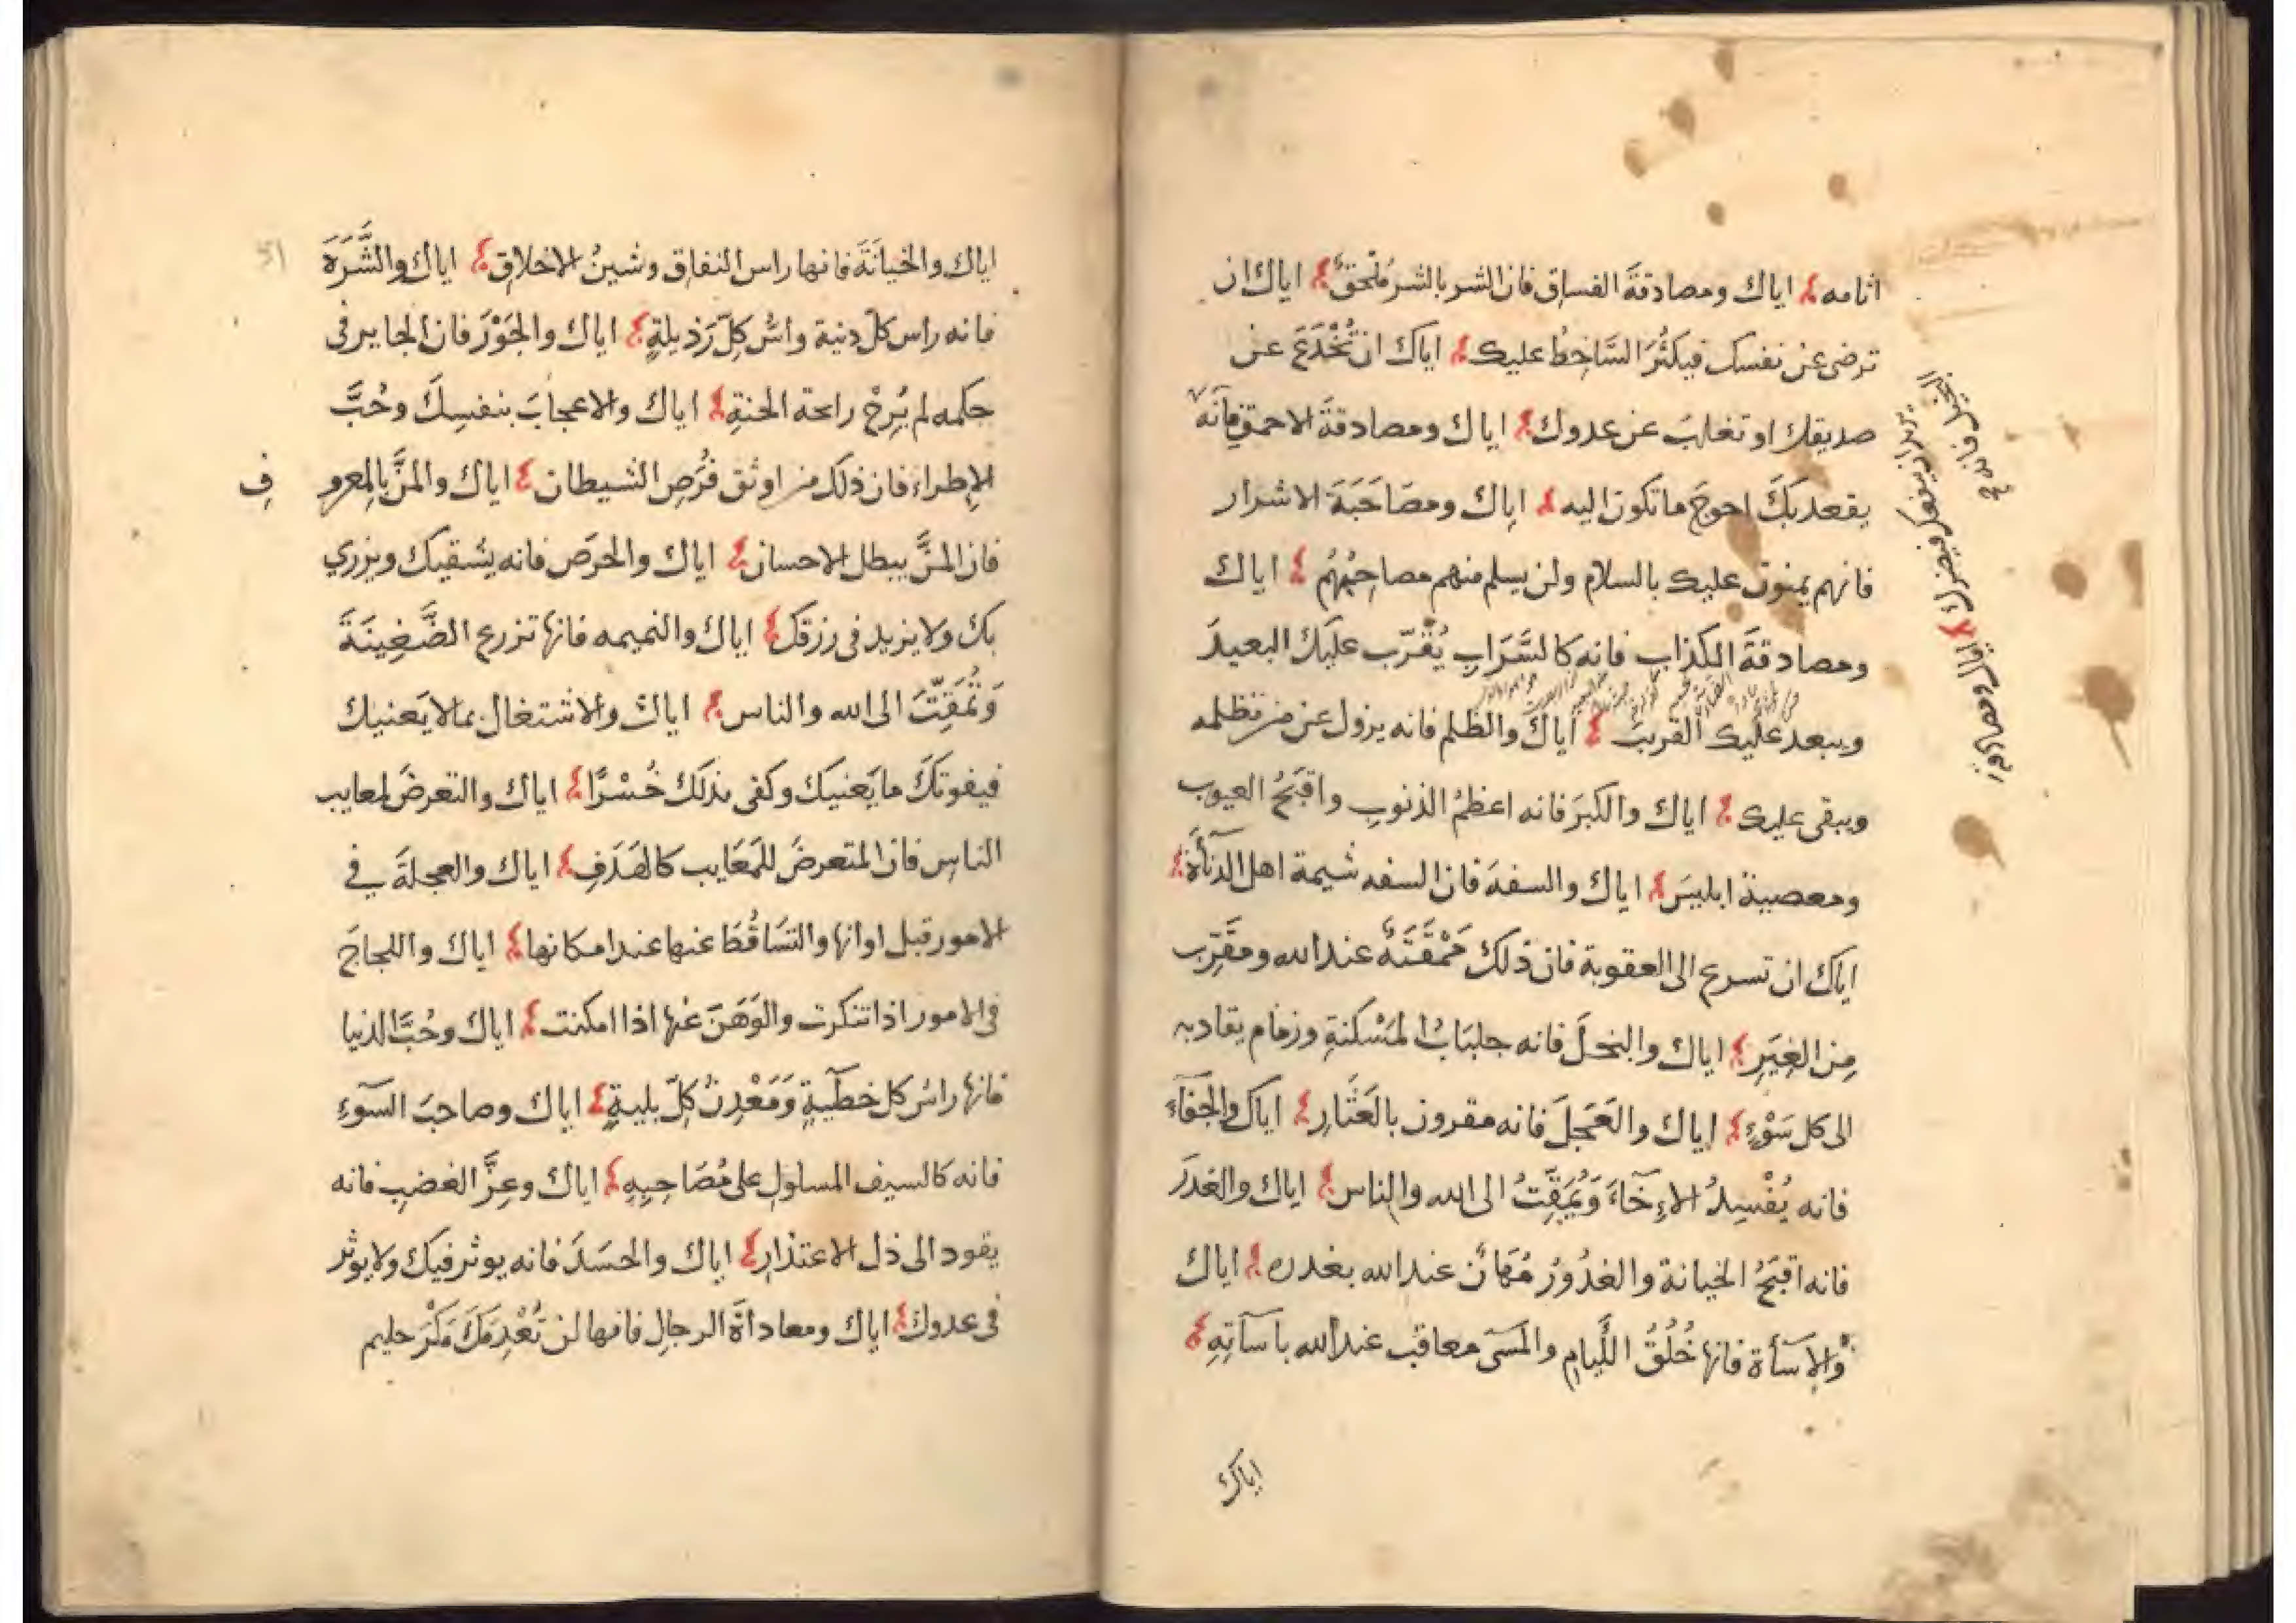 اثامه اياك ومصادقةَ الفساق فان الشر بالشر مُلْحَقٌ اياك ان
ترضى عن نفسك فيكثُرَ السَّاخِطُ عليك اياك ان تُخْدَعَ عن
صديقك او تغلبَ عن عدوك اياك ومصادقةَ الاحمق فانَّه
يقعد بكَ احوجَ ما تكون اليه اياك ومصَاحَبَةَ الاشرار
فانهم يمنون عليك بالسلام ولن يسلم منهم مصاحِبُهُم اياك
ومصادقةَ الكذاب فانه كالسَّرَابِ يُقَرّب عليك البعيدَ
ويبعد عليك القريبَ اياكَ والظلم فانه يزول عن من تظلمه
ويبقى عليك اياك والكبرَ فانه اعظمُ الذنوبِ واقبَحُ العيوب
ومعصية ابليسَ اياك والسفهَ فان السفه شيمة اهل الدنآءَة
اياك ان تسرع الى العقوبة فان ذلك مَمْقَتَةٌ عند الله ومقَرِّب
مِن الغِيَرِ اياك والبخلَ فانه جلبَابُ المَسْكنةِ وزمام يقاد به
الى كل سَوْءٍ اياك والعَجَلَ فانه مقرون بالعَثَارِ اياك والجَفآءَ
فانه يُفْسِدُ الاِخآءَ وَيُمَقِّتُ الى الله والناس اياك والغدرَ
فانه اقبَحُ الخيانة والغدُورُ مُهَانٌ عند الله بغدره اياك
والاِسآءة فانها خُلُقُ اللَّيام والمسىَ معاقب عند الله باسآتِهِ
اياك
البخيل فانه
يريد ان ينفعك فيضرك اياك ومصادقة
اياك والخيانَةَ فانها راس النفاق وشينُ الاخلاقِ اياك والشَّرَهَ
فانه راس كلّ دنية واسُّ كلّ رَذيلةٍ اياك والجَوْرَ فان الجاير فى
حكمه لم يُرِحْ رايحة الجنةِ اياك والاعجابَ بنفسِكَ وحُبَّ
الاِطراء فان ذلك من اوثق فُرَصِ الشيطان اياك والمنَّ بالمعرو
فِ
فان المنَّ يبطل الاحسان اياك والحرَص فانه يشقيك ويزري
بك ولا يزيد فى رزقك اياك والنميمه فانها تزرع الضَّغِينَةَ
وَتُمَقِّتَ الى الله والناس اياك والاشتغال بما لا يَعنيك
فيفوتكَ ما يَعنيكَ وكفى بذلكَ خُسْرًا اياك والتعرضَ لمعايب
الناس فان المتعرضَ للمَعَايب كالهَدَفِ اياك والعجلةَ في
الامور قبل اوانها والتسَاقُطَ عنها عند امكانها اياك واللجاجَ
فى الامور اذا تنكرت والوَهَنَ عنها اذا امكنت اياك وحُبَّ الدنيا
فانها راسُ كل خطيَةٍ وَمَعْدِنُ كلّ بليةٍ اياك وصاحبَ السَّوءِ
فانه كالسيف المسلولِ على مُصَاحِبِهِ اياك وعِزَّ الغضبِ فانه
يقود الى ذل الاعتذارِ اياك والحسَدَ فانه يوثر فيك ولا يوثر
فى عدوك اياك ومعاداةَ الرجالِ فانها لن تُعْدِمَكَ مَكْرَ حليم